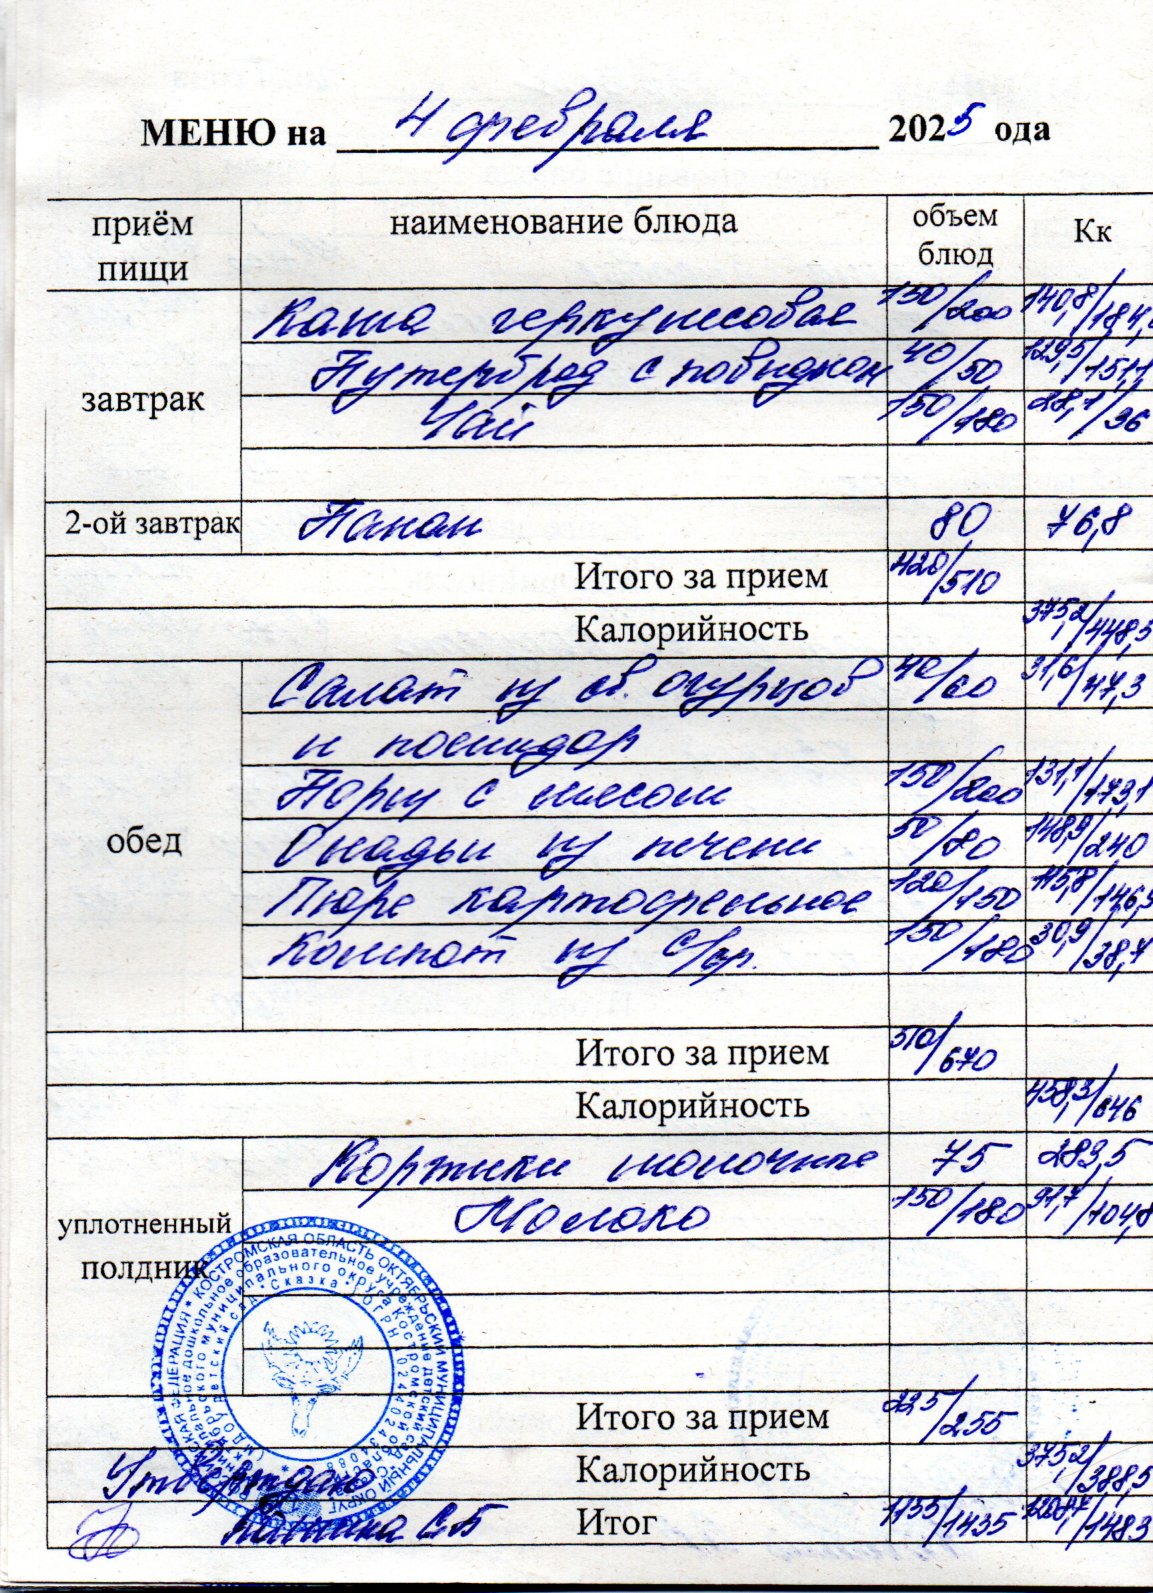 МЕНЮ на 4 февраля 2025 ода
приём пищи наименование блюда объем блюд Кк
завтрак
Каша геркулесовая 150/200 140,8/184,
Бутерброд с повидлом 40/50 129,5/151,1
Чай 150/180 28,1/36
2-ой завтрак Банан 80 76,8
Итого за прием 420/510
Калорийность 375,2/448,5
обед
Салат из св. огурцов 40/60 31,6/47,3
и помидор
Борщ с мясом 150/200 131,1/173,1
Оладьи из печени 50/80 148,9/240
Пюре картофельное 120/150 115,8/146,9
Компот из с/фр. 150/180 30,9/38,7
Итого за прием 510/670
Калорийность 458,3/646
уплотненный полдник
Коржики молочные 75 283,5
Молоко 150/180 91,7/104,8
Итого за прием 225/255
Калорийность 375,2/388,5
Итог 1155/1435 /1483
Утверждаю
С.Б
КОСТРОМСКАЯ ОБЛАСТЬ ОКТЯБРЬСКИЙ МУНИЦИПАЛЬНЫЙ ОКРУГ
дошкольное образовательное учреждение детский сад
муниципального округа Костромской области
детский сад "Сказка"